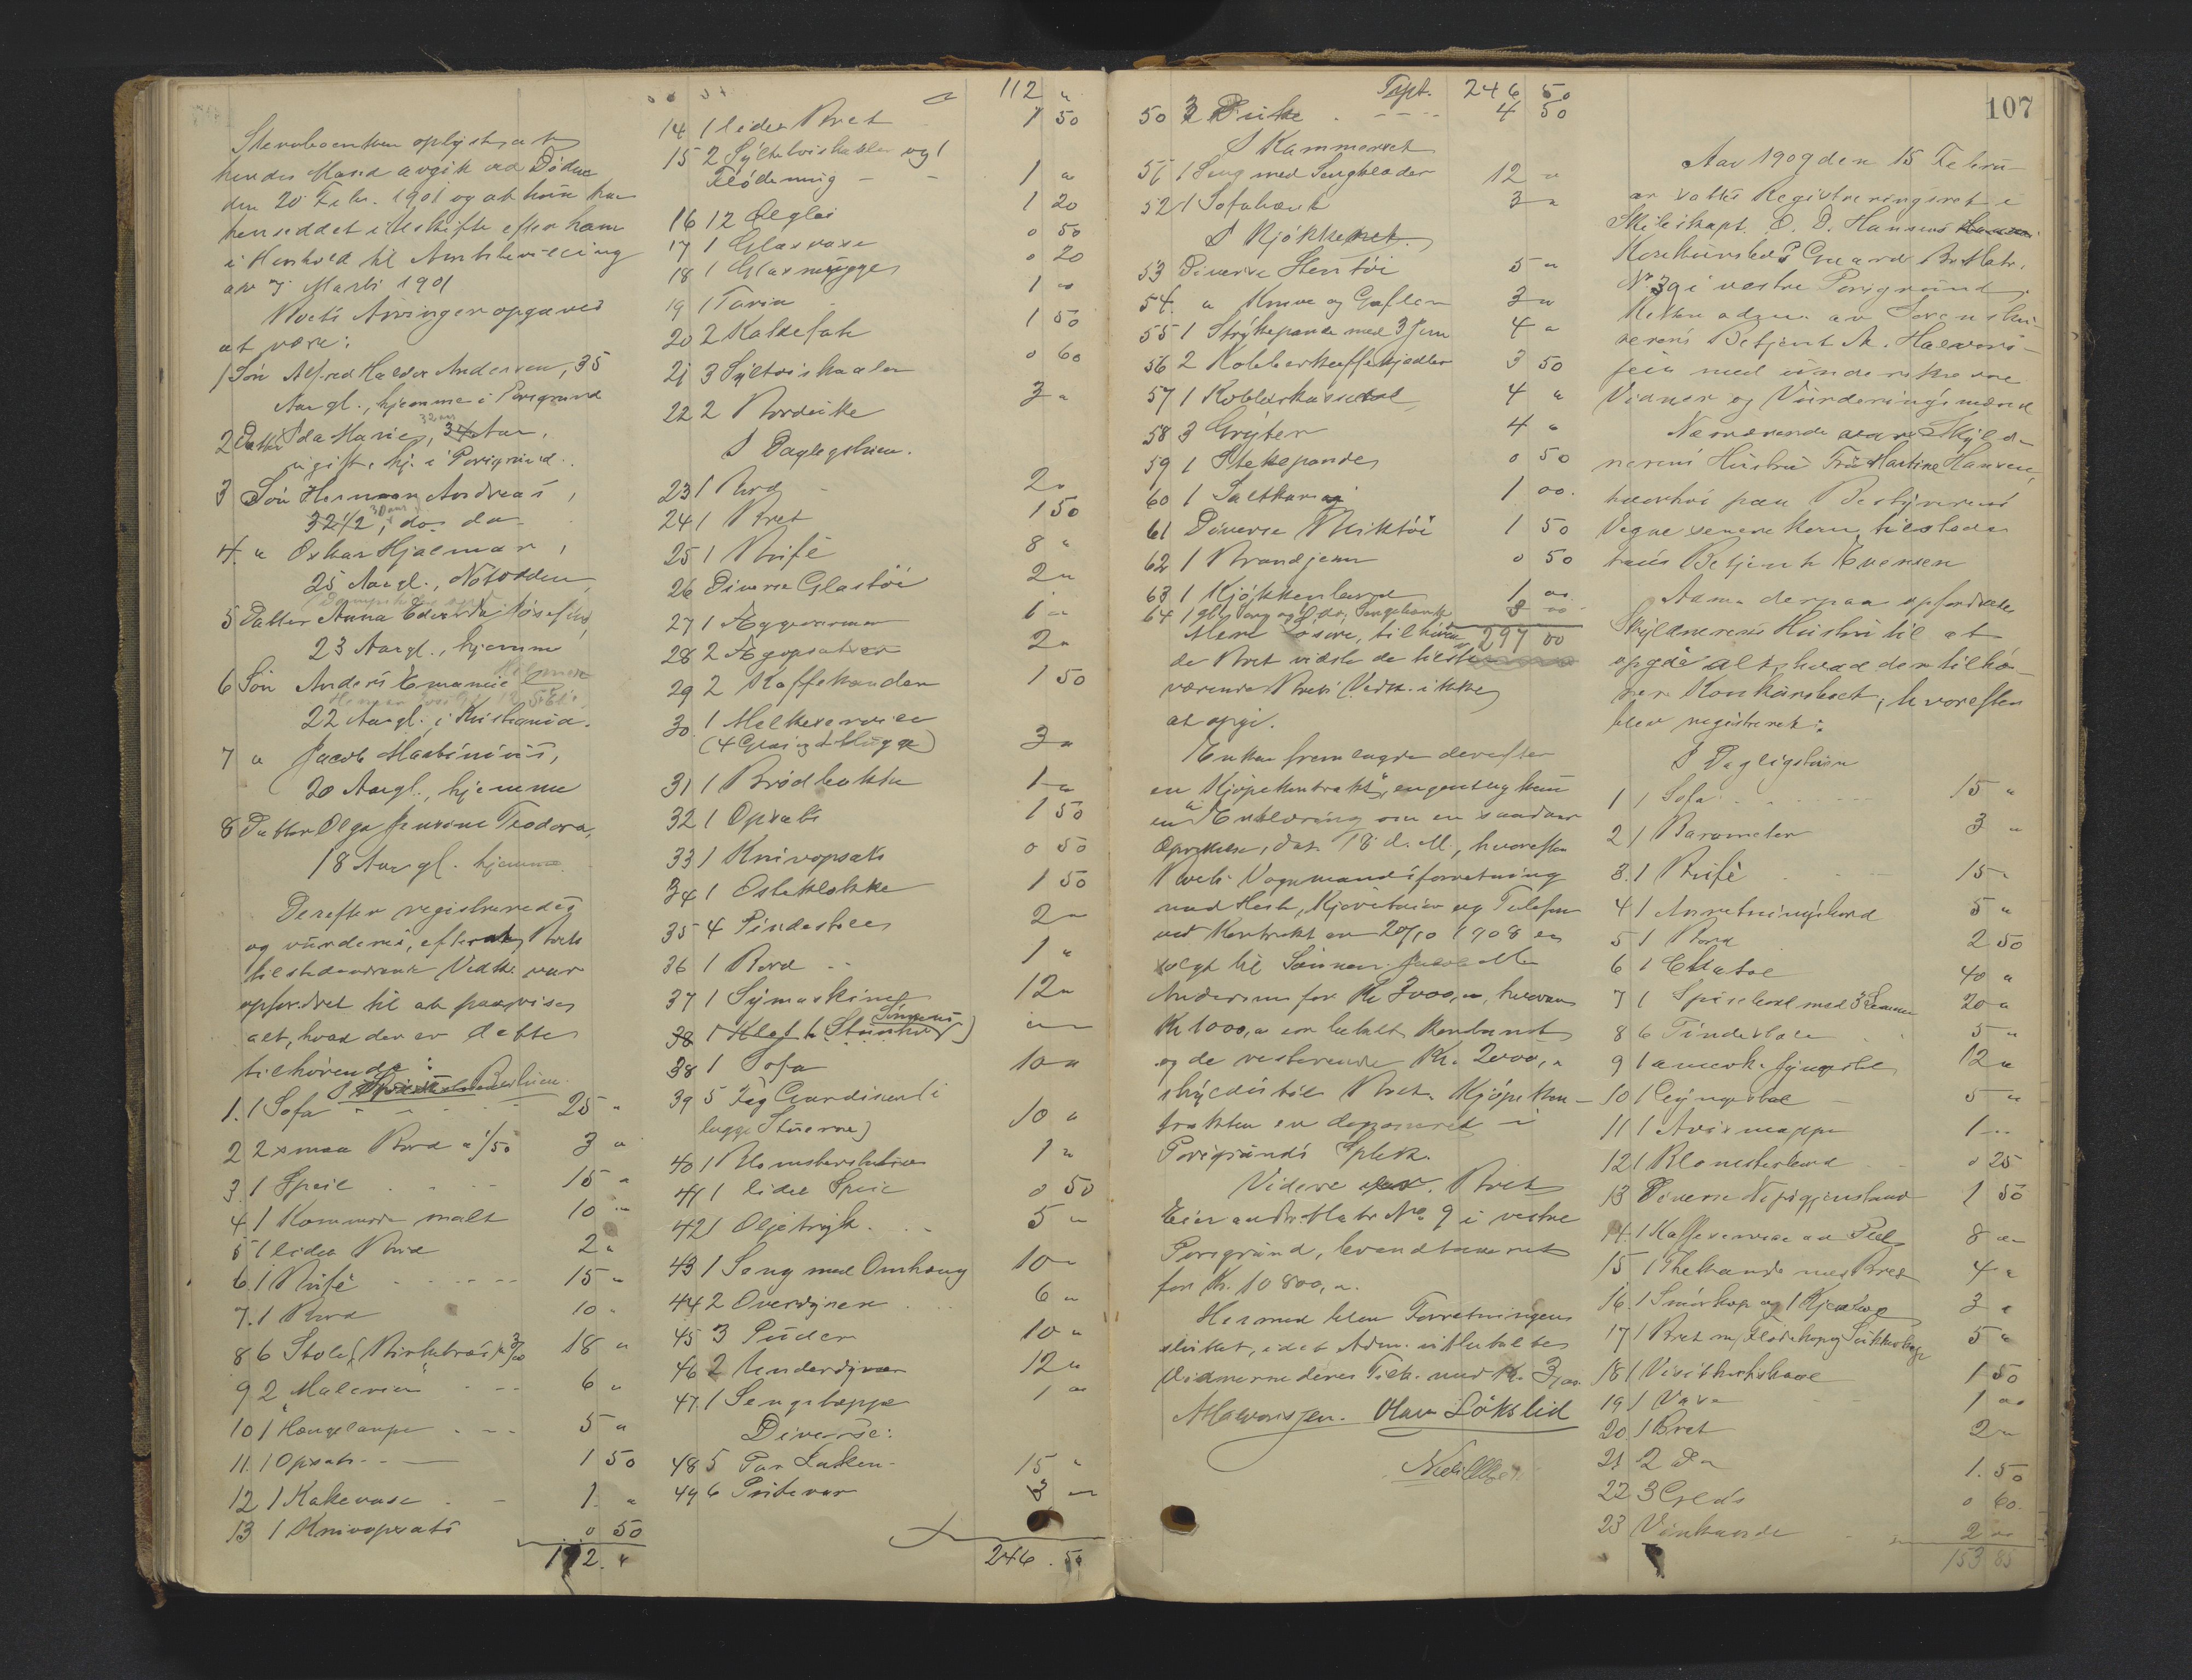 Stervboenken oplyste, at
hendes Mand avgik ved Döden
den 20 Febr. 1901 og at hun har
henseddet i Uskifte efter ham
i Henhold til Amtsbevilling
av 7 Marts 1901
Boets Arvinger opgaves
at være:
1 Sön Alfred Halvor Andersen, 35
Aar gl., hjemme i Porsgrund
32 aar
2 Datter Ida Marie, 34 Aar,
ugift, hj. i Porsgrund.
3 Sön Herman Andreas,
30 aar
32 1/2, do. do.
4. " Oskar Hjalmar,
25 Aar gl., Notodden
5 Datter Anna Edvarda Josefine,
23 Aar gl., hjemme
6 Sön Anders Emanuel
22 Aar gl. i Kristiania.
7 " Jacob Martinius,
20 Aar gl., hjemme
8 Datter Olga Jensine Teodora,
18 Aar gl. hjemme.
Derefter registreredes
og vurderes, efterat Boets
tilstedeværende Vedk. var
opfordret til at paavise
alt, hvad der er dette
tilhörende:
1. 1 Sofa 25 "
2 2 smaa Bord a 1/50 3 "
3. 1 Speil 15 "
4. 1 Kommode malt 10 "
5 1 lidet Bord 2 "
6. 1 Bufé 15 "
7. 1 Bord 10 "
8 6 Stole (Birketræs) a 3/00 18 "
9 2 "Malerier" 6 "
10 1 Hængelampe 5 "
11. 1 Opsats 1 50
12 1 Kakevase 1. "
13 1 Knivopsats 0 50
112. "
112 "
14 1 lidet Bret 1 50
15 2 Syltetöiskaaler og 1
Flödemug 1 "
16 12 Ölglas 1 20
17 1 Glasvase 0 50
18 1 Glasmugge 0 20
19 1 Tarin 1 "
20 2 Kakefat 1 50
21 3 Syltöiskaaler 0 60
22 2 Borduke 3 "
I Daglegstuen.
23 1 Bord 2 "
24 1 Bret 1 50
25 1 Bufé 8 "
26 Diverse Glastöi 2 "
27 1 Æggevarmer 1 "
28 2 Ægopsatser 2 "
29 2 Kaffekander 1 50
30 1 Melkeservise
(4 Glas og 1 Mugge) 3 "
31 1 Brödbakke 1 "
32 1 Opsats 1 50
33 1 Knivopsats 0 50
34 1 Osteklokke 1 50
35 4 Pindestoler 2 "
36 1 Bord 1 "
37 1 Symaskine 12 "
38 1 Sofa 10 "
39 5 Fag Gardiner (i
begge Stuerne) 10 "
40 1 Blomsterstativ 1 "
41 1 lidet Speil 0 50
42 1 Oljetryk 5 "
43 1 Seng med Omhæng 10 "
44 2 Overdyner 6 "
45 3 Puder 10 "
46 2 Underdyner 12 "
47 1 Sengeteppe 1 "
Diverse:
48 5 Par Laken 15 "
49 6 Putevar 3 "
246. 50
Tspt. 246 50
50 3 Duke 4 50
I Kammerset
51 1 Seng med Sengklæder 12 "
52 1 Sofabænk 3 "
I Kjökkenet.
53 Diverse Stentöi 5 "
54. " Knive og Gafler 3 "
55 1 Strykepande med 3 Jern 4 "
56 2 Kobberkaffekjedler 3 50
57 1 Kobberkasserol 4 "
58 3 Gryter 4 "
59 1 Stekepande 0 50
60 1 Saltkar 1 00.
61 Diverse Bliktöi 1 50
62 1 Brandjern 0 50
63 1 Kjökkenbord 1 00
297 00
Mere Lösöre, tilhören-
de Boet vidste de tilste-
værende Boets Vedk. ikke
at opgi.
Enken fremlagde derefter
en Kjöpekontrakt,
en Erklæring om en saadan
Oprettelse, dat. 18 d. M., hvorefter
Boets Vognmandsforretning
med Hest, Kjöretöier og Telefon
ved Kontrakt av 20/10 1908 er
solgt til Sönnen Jacob M.
Andersen for Kr. 3000,00, hvorav
Kr 1000,00 er betalt kontant
og de resterende Kr. 2000,00
skyldes til Boet. Kjöpekon-
trakten er deponeret i
Porsgrunds Spbk.
Videre eier Boet
Eiendom Matr. No. 9 i vestre
Porsgrund, brandtakseret
for Kr. 10 800,00.
Hermed blev Forretningen
sluttet, idet Adm. utbetaltes
Vidnerne deres Tilk. med Kr. 3,00
M Halvorsen. Olav Lökslid
107
Aar 1909 den 15 Febru-
ar sattes Registreringsret i
Skibskapt. O. D. Hansens
Konkursbos Gaard Matr.
No. 39 i vestre Porsgrund.
Retten adm. av Sorenskri-
verens Betjent M. Halvor-
sen med underskrevne
Vidner og Vurderingsmænd
Nærværende var Skyld-
nerens Hustru Fru Martine Hansen,
hvorhos paa Bestyrerens
Vegne senere kom tilstede
hans Betjent Evensen
Adm. derpaa opfordrede
Skyldnerens Hustru til at
opgi alt, hvad der tilhö-
rer Konkursboet, hvorefter
blev registreret:
I Dagligstuen
1 1 Sofa 15 "
2 1 Barometer 3 "
3. 1 Bufé 15 "
4 1 Anretningsbord 5 "
5 1 Bord 2 50
6 1 Chatol 40 "
7 1 Spisebord med 3 Lemmer 20 "
8 6 Pindestoler 5 "
9 1 amerik. Gyngestol 12 "
10 1 Gyngestol 5 "
11 1 Avismappe 1 "
12 1 Blomsterbord 0 25
13 Diverse Nipsgjenstand 1 50
14. 1 Kaffeservise av Plet 8 "
15 1 Thekande med Bret 4 "
16. 1 Smörkop og 1 3 "
17 1 Bret m/ Flödekop og Sukkerkop 5 "
18 1 Visitkortskaal 1 50
19 1 Vase 1 00
20 1 Bret 2 "
21 2 Do 1. 50
22 3 Glas 0 60.
23 Vinkande 2 00
153 85